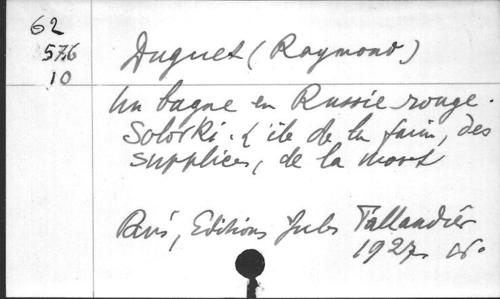 62
576
10
Duguet (Raymond)
Un bagne en Russie rouge.
Solovki. L'île de la faim, des
supplices, de la mort
Paris, Editions Jules Tallandier
1927.